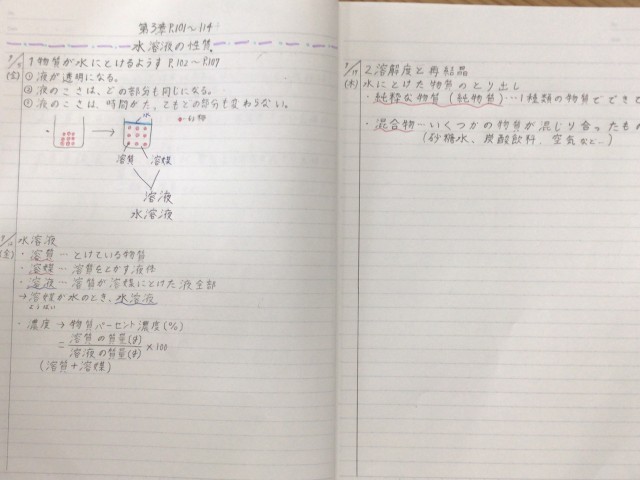 第3章 P.101〜114
水溶液の性質
(金)
1 物質が水にとけるようす P.102〜P.107
①液が透明になる。
②液のこさは、どの部分も同じになる。
③液のこさは、時間がたってもどの部分も変わらない。
水
砂糖
溶質 溶媒
溶液
水溶液
(金)
水溶液
・溶質…とけている物質
・溶媒…溶質をとかす液体
・溶液…溶質が溶媒にとけた液全部
→溶媒が水のとき、水溶液
ようばい
・濃度→物質パーセント濃度(%)
=溶質の質量(g)
溶液の質量(g)
×100
(溶質+溶媒)
(木)
2 溶解度と再結晶
水にとけた物質のとり出し
・純粋な物質(純物質)…1種類の物質でできて
・混合物…いくつかの物質が混じり合ったもの
(砂糖水、炭酸飲料、空気など…)